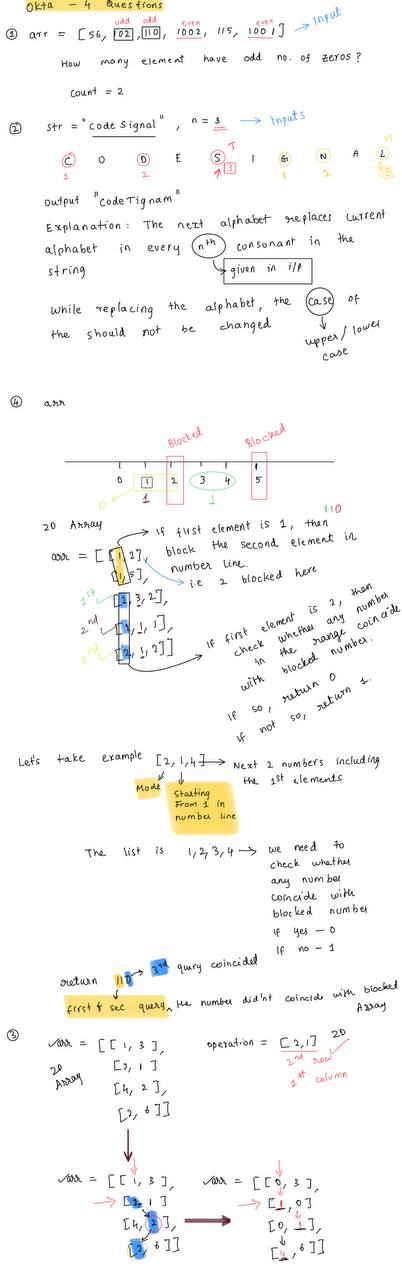 Okta - 4 Questions
① arr = [56, 102, 110, 1002, 115, 1001] → Input
odd odd even even
How many element have odd no. of zeros?
Count = 2
② str = "Code Signal", n = 3 → Inputs
T M
C O D E S I G N A L
1 2 3 1 2 3
Output "CodeTignam"
Explanation: The next alphabet replaces current
alphabet in every nth consonant in the
string
given in i/p
While replacing the alphabet, the case of
the should not be changed
upper/lower
case
④ arr
Blocked Blocked
0 1 2 3 4 5
0 1 1
110
2D Array
arr = [[1, 2],
[1, 5],
1st [2, 3, 2],
2nd [2, 1, 1],
3rd [2, 1, 2]]
If first element is 1, then
block the second element in
number line
i.e 2 blocked here
If first element is 2, then
check whether any number
in the range coincide
with blocked number.
If so, return 0
If not so, return 1.
Let's take example [2, 1, 4] → Next 2 numbers including
the 1st elements
Mode
Starting
From 1 in
number line
The list is 1, 2, 3, 4 → we need to
check whether
any number
coincide with
blocked number
If yes - 0
If no - 1
return 110 → 3rd query coincided
first & sec query, the number didn't coincide with blocked
Array
③ arr = [[1, 3],
[2, 1],
[4, 2],
[2, 6]]
2D
Array
operation = [2,1] 2D
2nd row
1st column
arr = [[1, 3],
[2, 1]
[4, 2],
[2, 6]]
arr = [[0, 3],
[1, 0]
2
[0, 1],
[4, 6]]